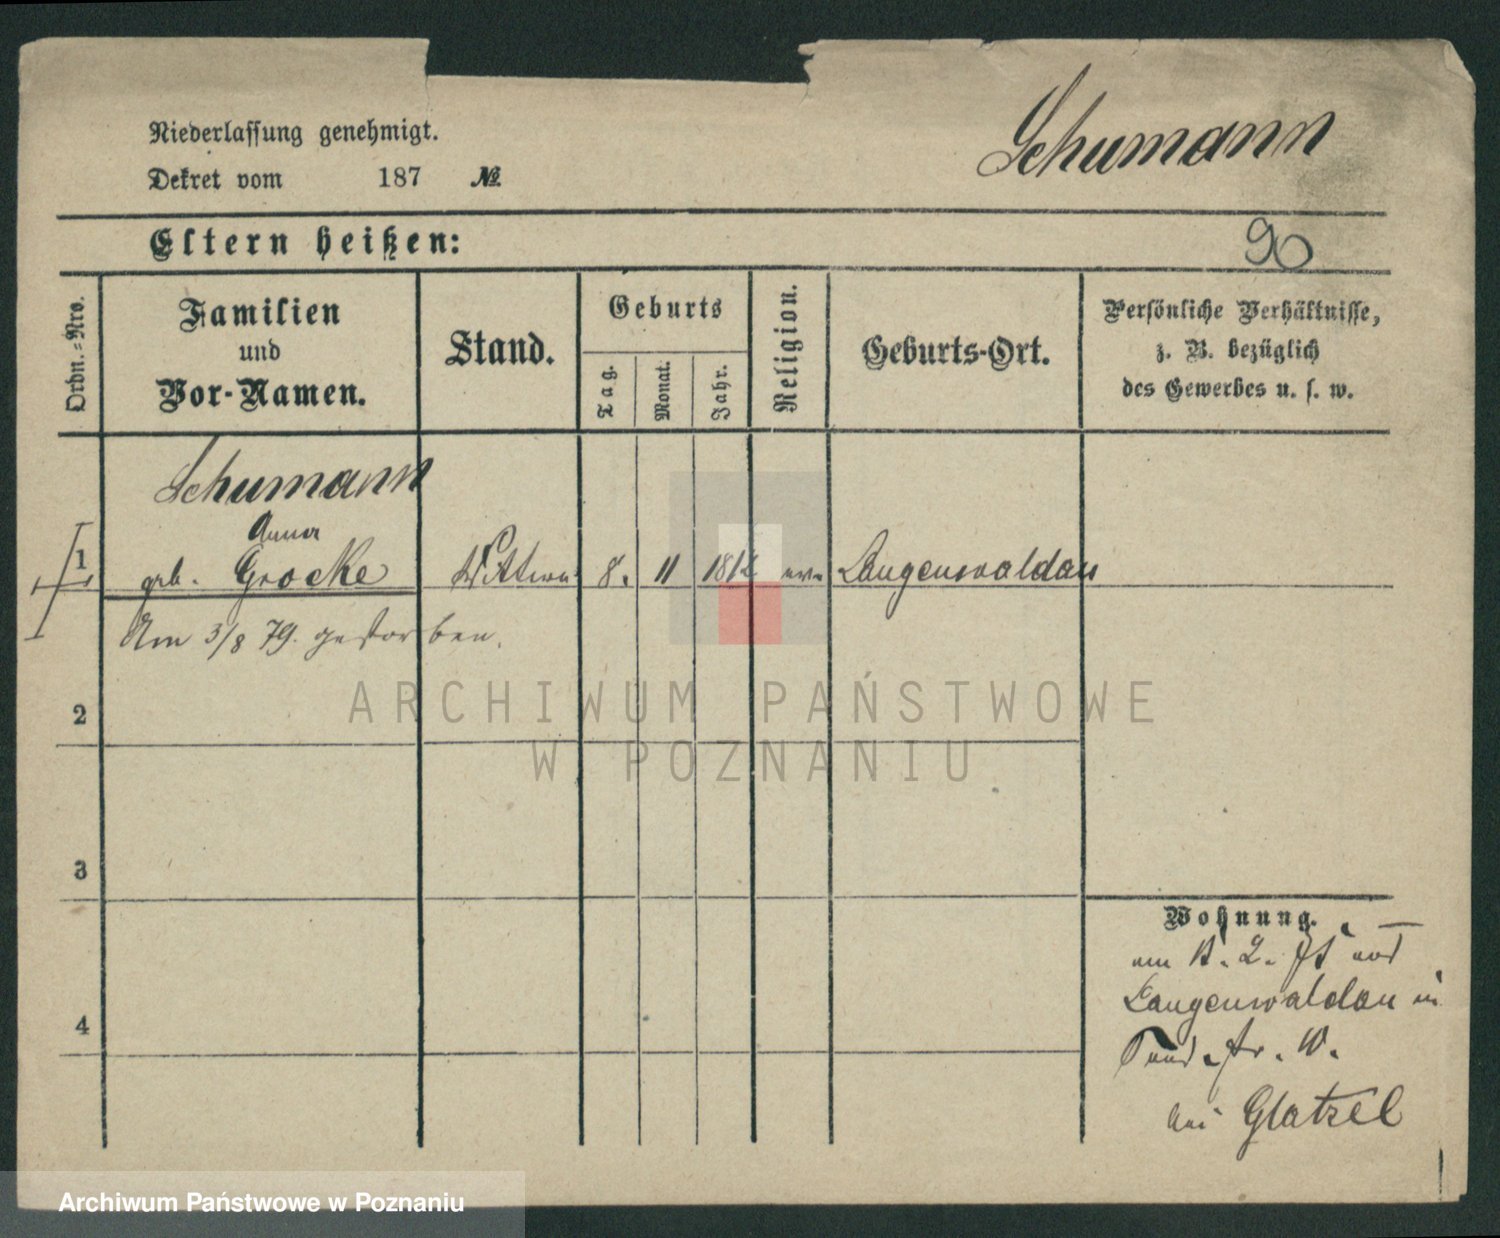 Schumann
Niederlassung genehmigt.
Dekret vom 187 №
Eltern heißen:
90
Ordn.-Nro.
Familien
und
Vor-Namen.
Stand.
Geburts
Tag.
Monat.
Jahr.
Religion.
Geburts-Ort.
Persönliche Verhältnisse,
z. B. bezüglich
des Gewerbes u. s. w.
Schumann
Anna
1 geb. Grocke Wittwe 8. 11 1812 ev. Langenwaldau
Am 3/8 79. gestorben.
2
3
4
Wohnung.
am
Langenwaldau in
str. 10.
bei Glatzel
ARCHIWUM PAŃSTWOWE
W POZNANIU
Archiwum Państwowe w Poznaniu